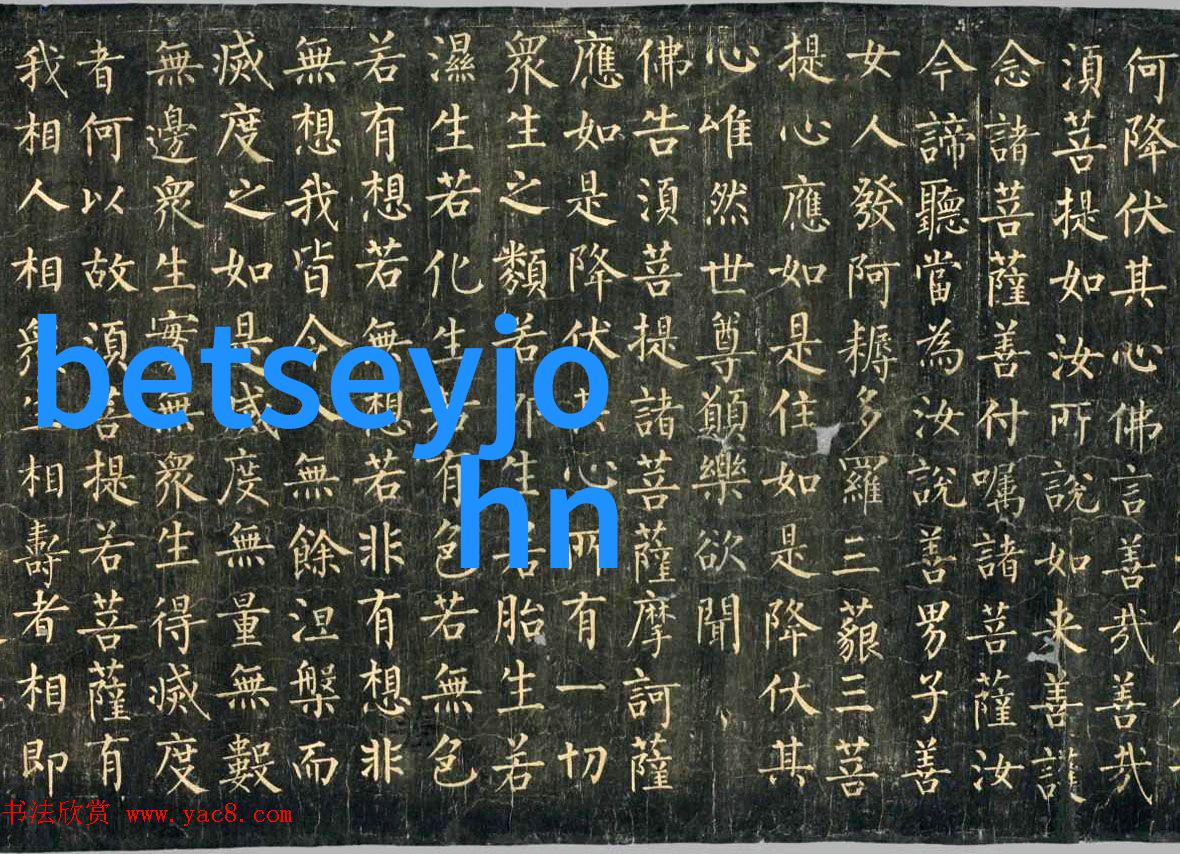 何降伏其心佛言善哉善哉
須菩提如汝所說如来善護
念諸菩薩善付嘱諸菩薩汝
今諦聽當為汝說善男子善
女人發阿耨多羅三藐三菩
提心應如是住如是降伏其
心唯然世尊願樂欲聞
佛告須菩提諸菩薩摩訶薩
應如是降伏其心所有一切
衆生之類若卵生若胎生若
濕生若化生若有色若無色
若有想若無想若非有想非
無想我皆令入無餘涅槃而
滅度之如是滅度無量無數
無邊衆生實無衆生得滅度
者何以故須菩提若菩薩有
我相人相衆生相壽者相即
betseyjo
hn
书法欣赏 www.yac8.com